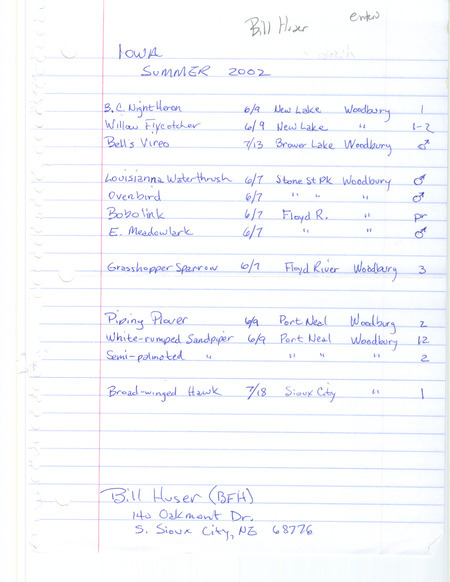 Bill Huser
entered
IOWA
SUMMER 2002
B.C. Night Heron 6/9 New Lake Woodbury 1
Willow Flycatcher 6/9 New Lake " 1-2
Bell's Vireo 7/13 Brower Lake Woodbury ♂
Louisianna Waterthrush 6/7 Stone St Pk Woodbury ♂
Ovenbird 6/7 " " " ♂
Bobolink 6/7 Floyd R. " pr
E. Meadowlark 6/7 " " ♂
Grasshopper Sparrow 6/7 Floyd River Woodbury 3
Piping Plover 6/9 Port Neal Woodbury 2
White-rumped Sandpiper 6/9 Port Neal Woodbury 12
Semi-palmated " " " " 2
Broad-winged Hawk 7/18 Sioux City " 1
Bill Huser (BFH)
140 Oakmont Dr.
S. Sioux City, NE 68776